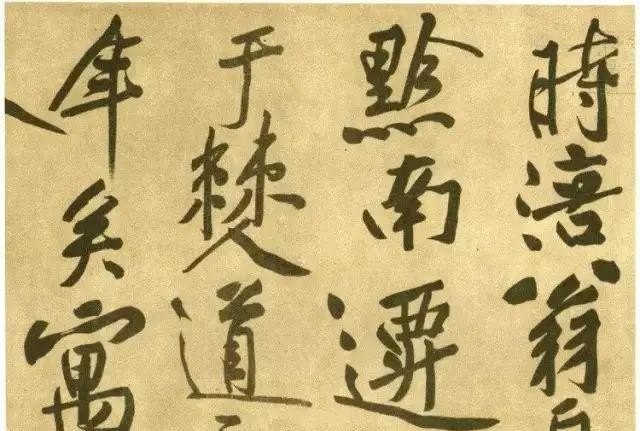 時涪翁
黔南遷
于僰道
年矣寓